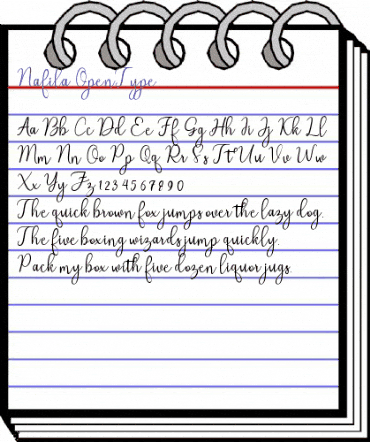 Nafila OpenType
Aa Bb Cc Dd Ee Ff Gg Hh Ii Jj Kk Ll
Mm Nn Oo Pp Qq Rr Ss Tt Uu Vv Ww
Xx Yy Zz 1 2 3 4 5 6 7 8 9 0
The quick brown fox jumps over the lazy dog.
The five boxing wizards jump quickly.
Pack my box with five dozen liquor jugs.